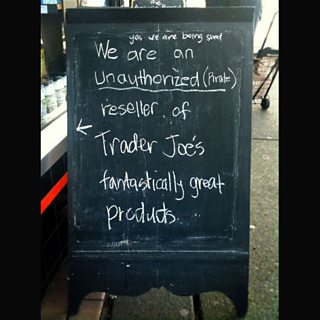 yes we are being sued
We are an
unauthorized (Pirate)
reseller of
Trader Joe's
fantastically great
products.